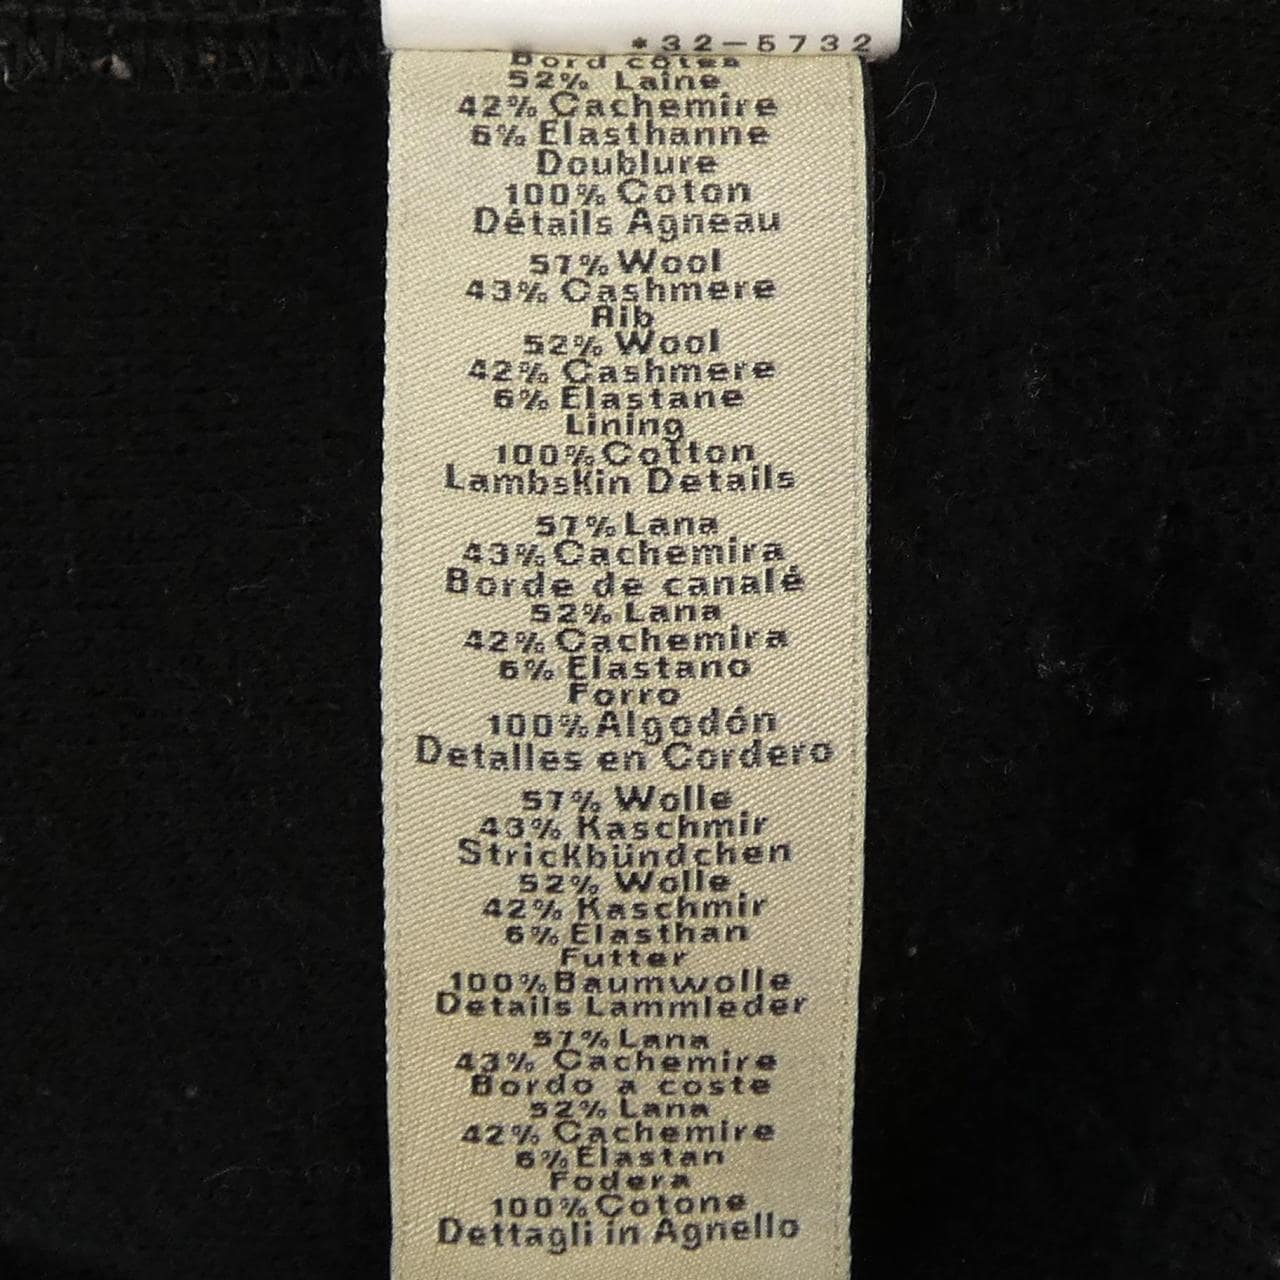 *32-5732
Bord côtes
52% Laine
42% Cachemire
6% Elasthanne
Doublure
100% Coton
Détails Agneau
57% Wool
43% Cashmere
Rib
52% Wool
42% Cashmere
6% Elastane
Lining
100% Cotton
Lambskin Details
57% Lana
43% Cachemira
Borde de canalé
52% Lana
42% Cachemira
6% Elastano
Forro
100% Algodón
Detalles en Cordero
57% Wolle
43% Kaschmir
Strickbündchen
52% Wolle
42% Kaschmir
6% Elasthan
Futter
100% Baumwolle
Details Lammleder
57% Lana
43% Cachemire
Bordo a coste
52% Lana
42% Cachemire
6% Elastan
Fodera
100% Cotone
Dettagli in Agnello